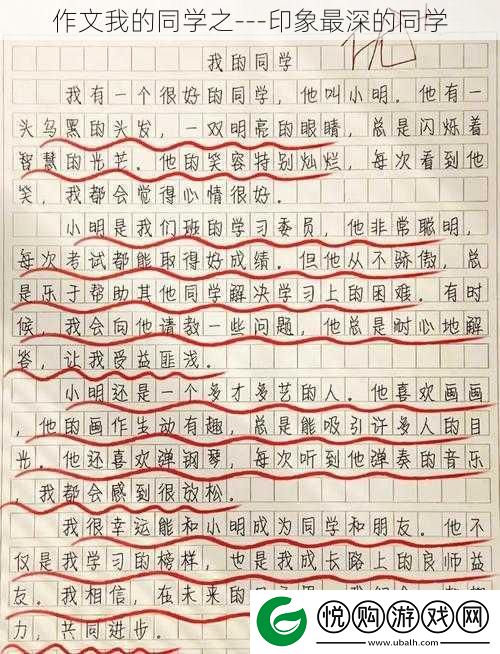 作文我的同学之---印象最深的同学
优
我的同学
我有一个很好的同学，他叫小明。他有一
头乌黑的头发，一双明亮的眼睛，总是闪烁着
智慧的光芒。他的笑容特别灿烂，每次看到他
笑，我都会觉得心情很好。
小明是我们班的学习委员，他非常聪明，
每次考试都能取得好成绩。但他从不骄傲，总
是乐于帮助其他同学解决学习上的困难。有时
候，我会向他请教一些问题，他总是耐心地解
答，让我受益匪浅。
小明还是一个多才多艺的人。他喜欢画画
，他的画作生动有趣，总是能吸引许多人的目
光。他还喜欢弹钢琴，每次听到他弹奏的音乐
，我都会感到很放松。
我很幸运能和小明成为同学和朋友。他不
仅是我学习的榜样，也是我成长路上的良师益
友。我相信，在未来的
力，共同进步。
悦购游戏网
www.ubalh.com